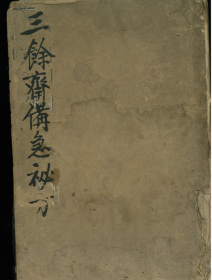 三餘齋備急祕方